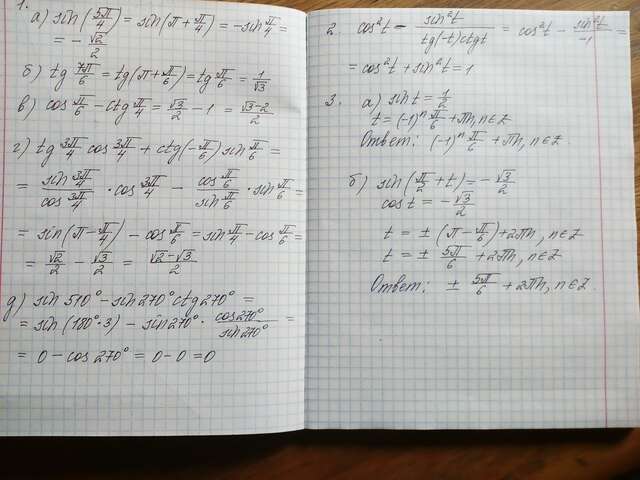 1.
а) sin(5π/4) = sin(π + π/4) = -sin π/4 =
= - √2/2
б) tg 7π/6 = tg(π + π/6) = tg π/6 = 1/√3
в) cos π/6 - ctg π/4 = √3/2 - 1 = √3-2/2
г) tg 3π/4 cos 3π/4 + ctg(-π/6) sin π/6 =
= sin 3π/4 / cos 3π/4 · cos 3π/4 - cos π/6 / sin π/6 · sin π/6 =
= sin(π - π/4) - cos π/6 = sin π/4 - cos π/6 =
= √2/2 - √3/2 = √2-√3/2
д) sin 510° - sin 270° ctg 270° =
= sin(180°·3) - sin 270° · cos 270° / sin 270° =
= 0 - cos 270° = 0 - 0 = 0
2. cos²t - sin²t / tg(-t)ctgt = cos²t - sin²t / -1 =
= cos²t + sin²t = 1
3. а) sin t = 1/2
t = (-1)ⁿ π/6 + πn, n∈Z
Ответ: (-1)ⁿ π/6 + πn, n∈Z
б) sin(π/2 + t) = - √3/2
cos t = - √3/2
t = ± (π - π/6) + 2πn, n∈Z
t = ± 5π/6 + 2πn, n∈Z
Ответ: ± 5π/6 + 2πn, n∈Z.